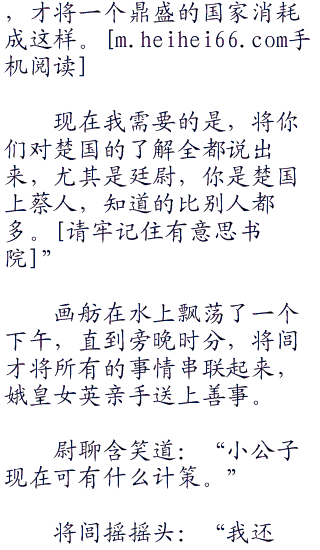 ，才将一个鼎盛的国家消耗
成这样。[m.heihei66.com手
机阅读]
现在我需要的是，将你
们对楚国的了解全都说出
来，尤其是廷尉，你是楚国
上蔡人，知道的比别人都
多。[请牢记住有意思书
院]”
画舫在水上飘荡了一个
下午，直到旁晚时分，将闾
才将所有的事情串联起来，
娥皇女英亲手送上善事。
尉聊含笑道：“小公子
现在可有什么计策。”
将闾摇摇头：“我还